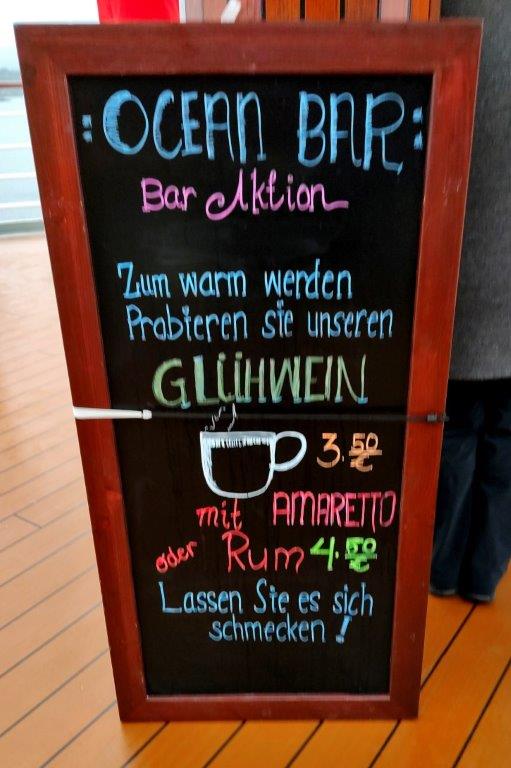 OCEAN BAR
Bar Aktion
Zum warm werden
Probieren sie unseren
GLÜHWEIN
3.50 €
mit AMARETTO
oder Rum 4.50 €
Lassen Sie es sich
schmecken!